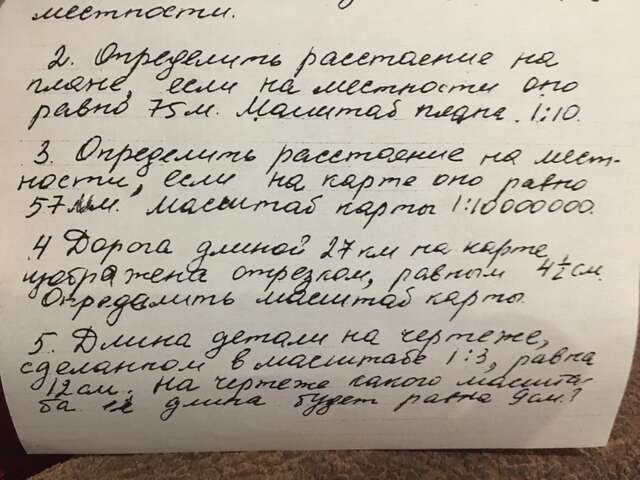 местности.
2. Определить расстаение на
плане, если на местности оно
равно 75 м. Масштаб плана 1:10.
3. Определить расстаение на мест-
ности, если на карте оно равно
57 мм. Масштаб карты 1:10000000.
4 Дорога длиной 27 км на карте
изображена отрезком, равным 4 1/2 см.
Определить масштаб карты.
5. Длина детали на чертеже,
сделанном в масштабе 1:3, равна
12 см. На чертеже какого масшта-
ба её длина будет равна 9 см.?